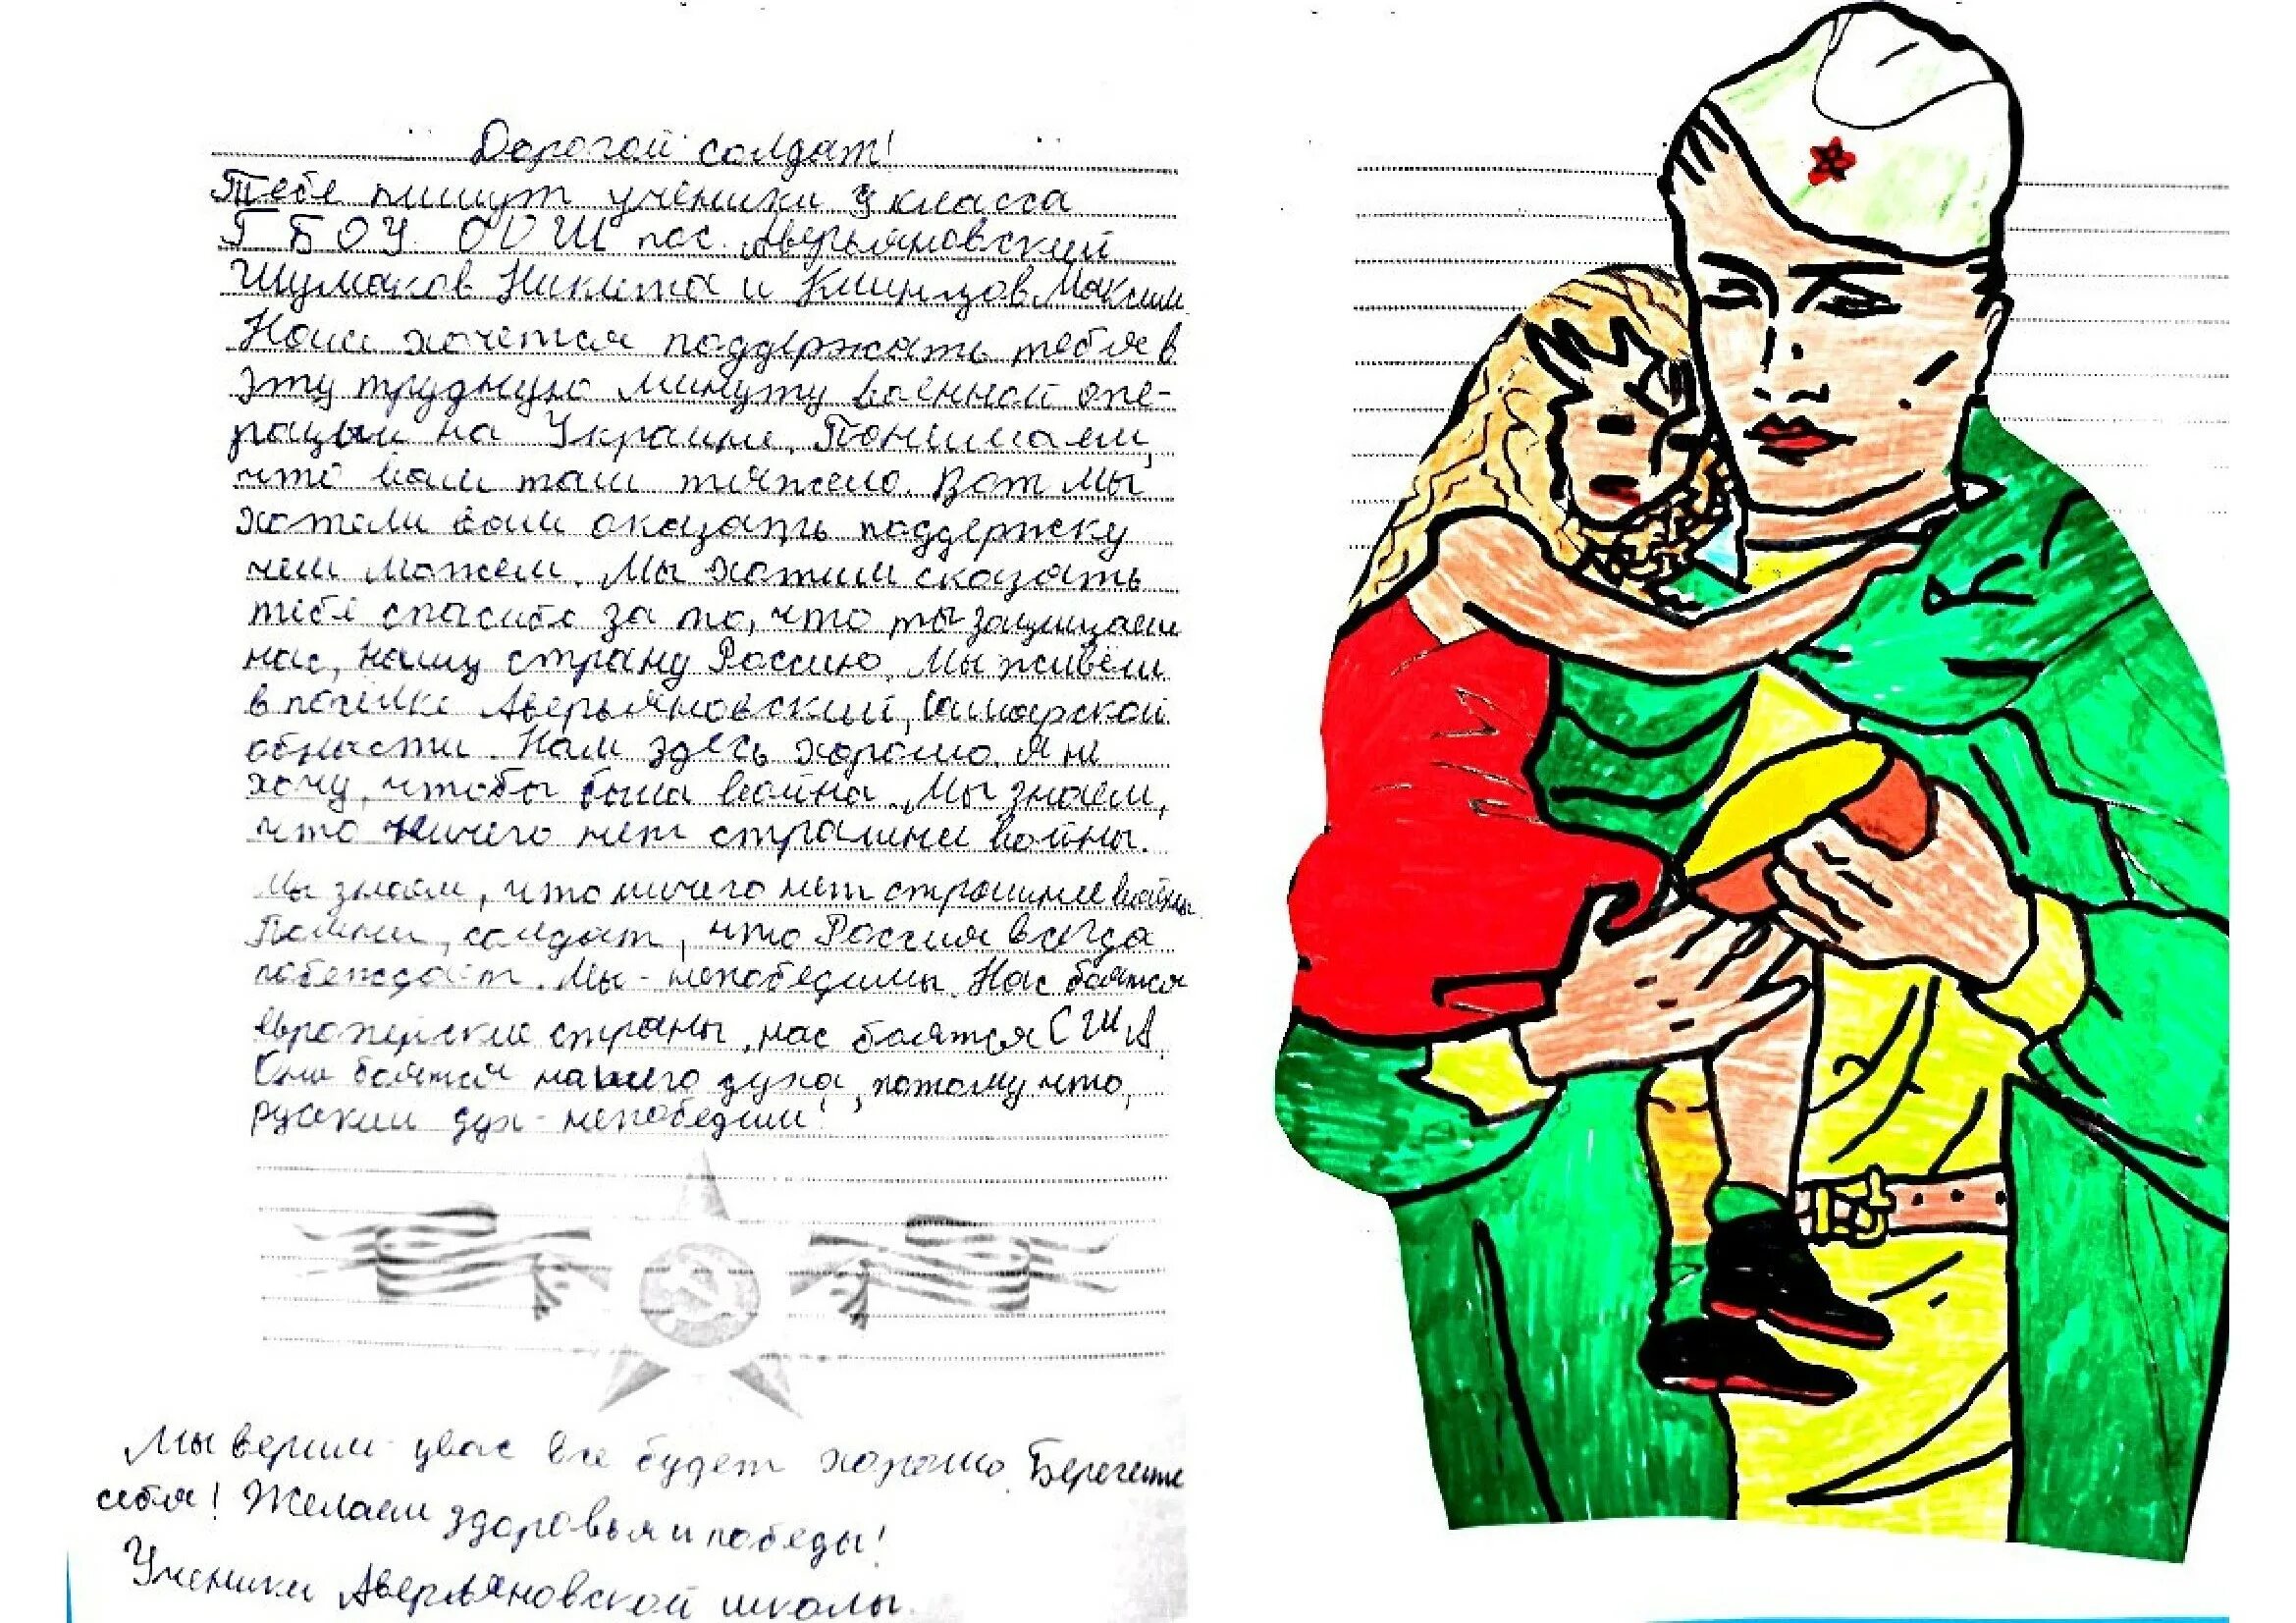 Дорогой солдат!
Тебе пишут ученики 9 класса
ГБОУ ООШ пос. Аверьяновский
Шумаков Никита и Клинцов Максим
Нам хочется поддержать тебя в
эту трудную минуту военной опе-
рации на Украине. Понимаем,
что вам там тяжело. Вот мы
хотели вам оказать поддержку
чем можем. Мы хотим сказать
тебе спасибо за то, что ты защищаеш
нас, нашу страну Россию. Мы живём
в посёлке Аверьяновский, Самарской
области. Нам здесь хорошо. Я не
хочу, чтобы была война. Мы знаем,
что ничего нет страшнее войны.
Мы знаем, что ничего нет страшнее войны.
Помни, солдат, что Россия всегда
побеждает. Мы - непобедимы. Нас боятся
европейские страны, нас боятся США.
Они боятся нашего духа, потому что,
русский дух - непобедим!
Мы верим у вас все будет хорошо. Берегите
себя! Желаем здоровья и победы!
Ученики Аверьяновской школы.